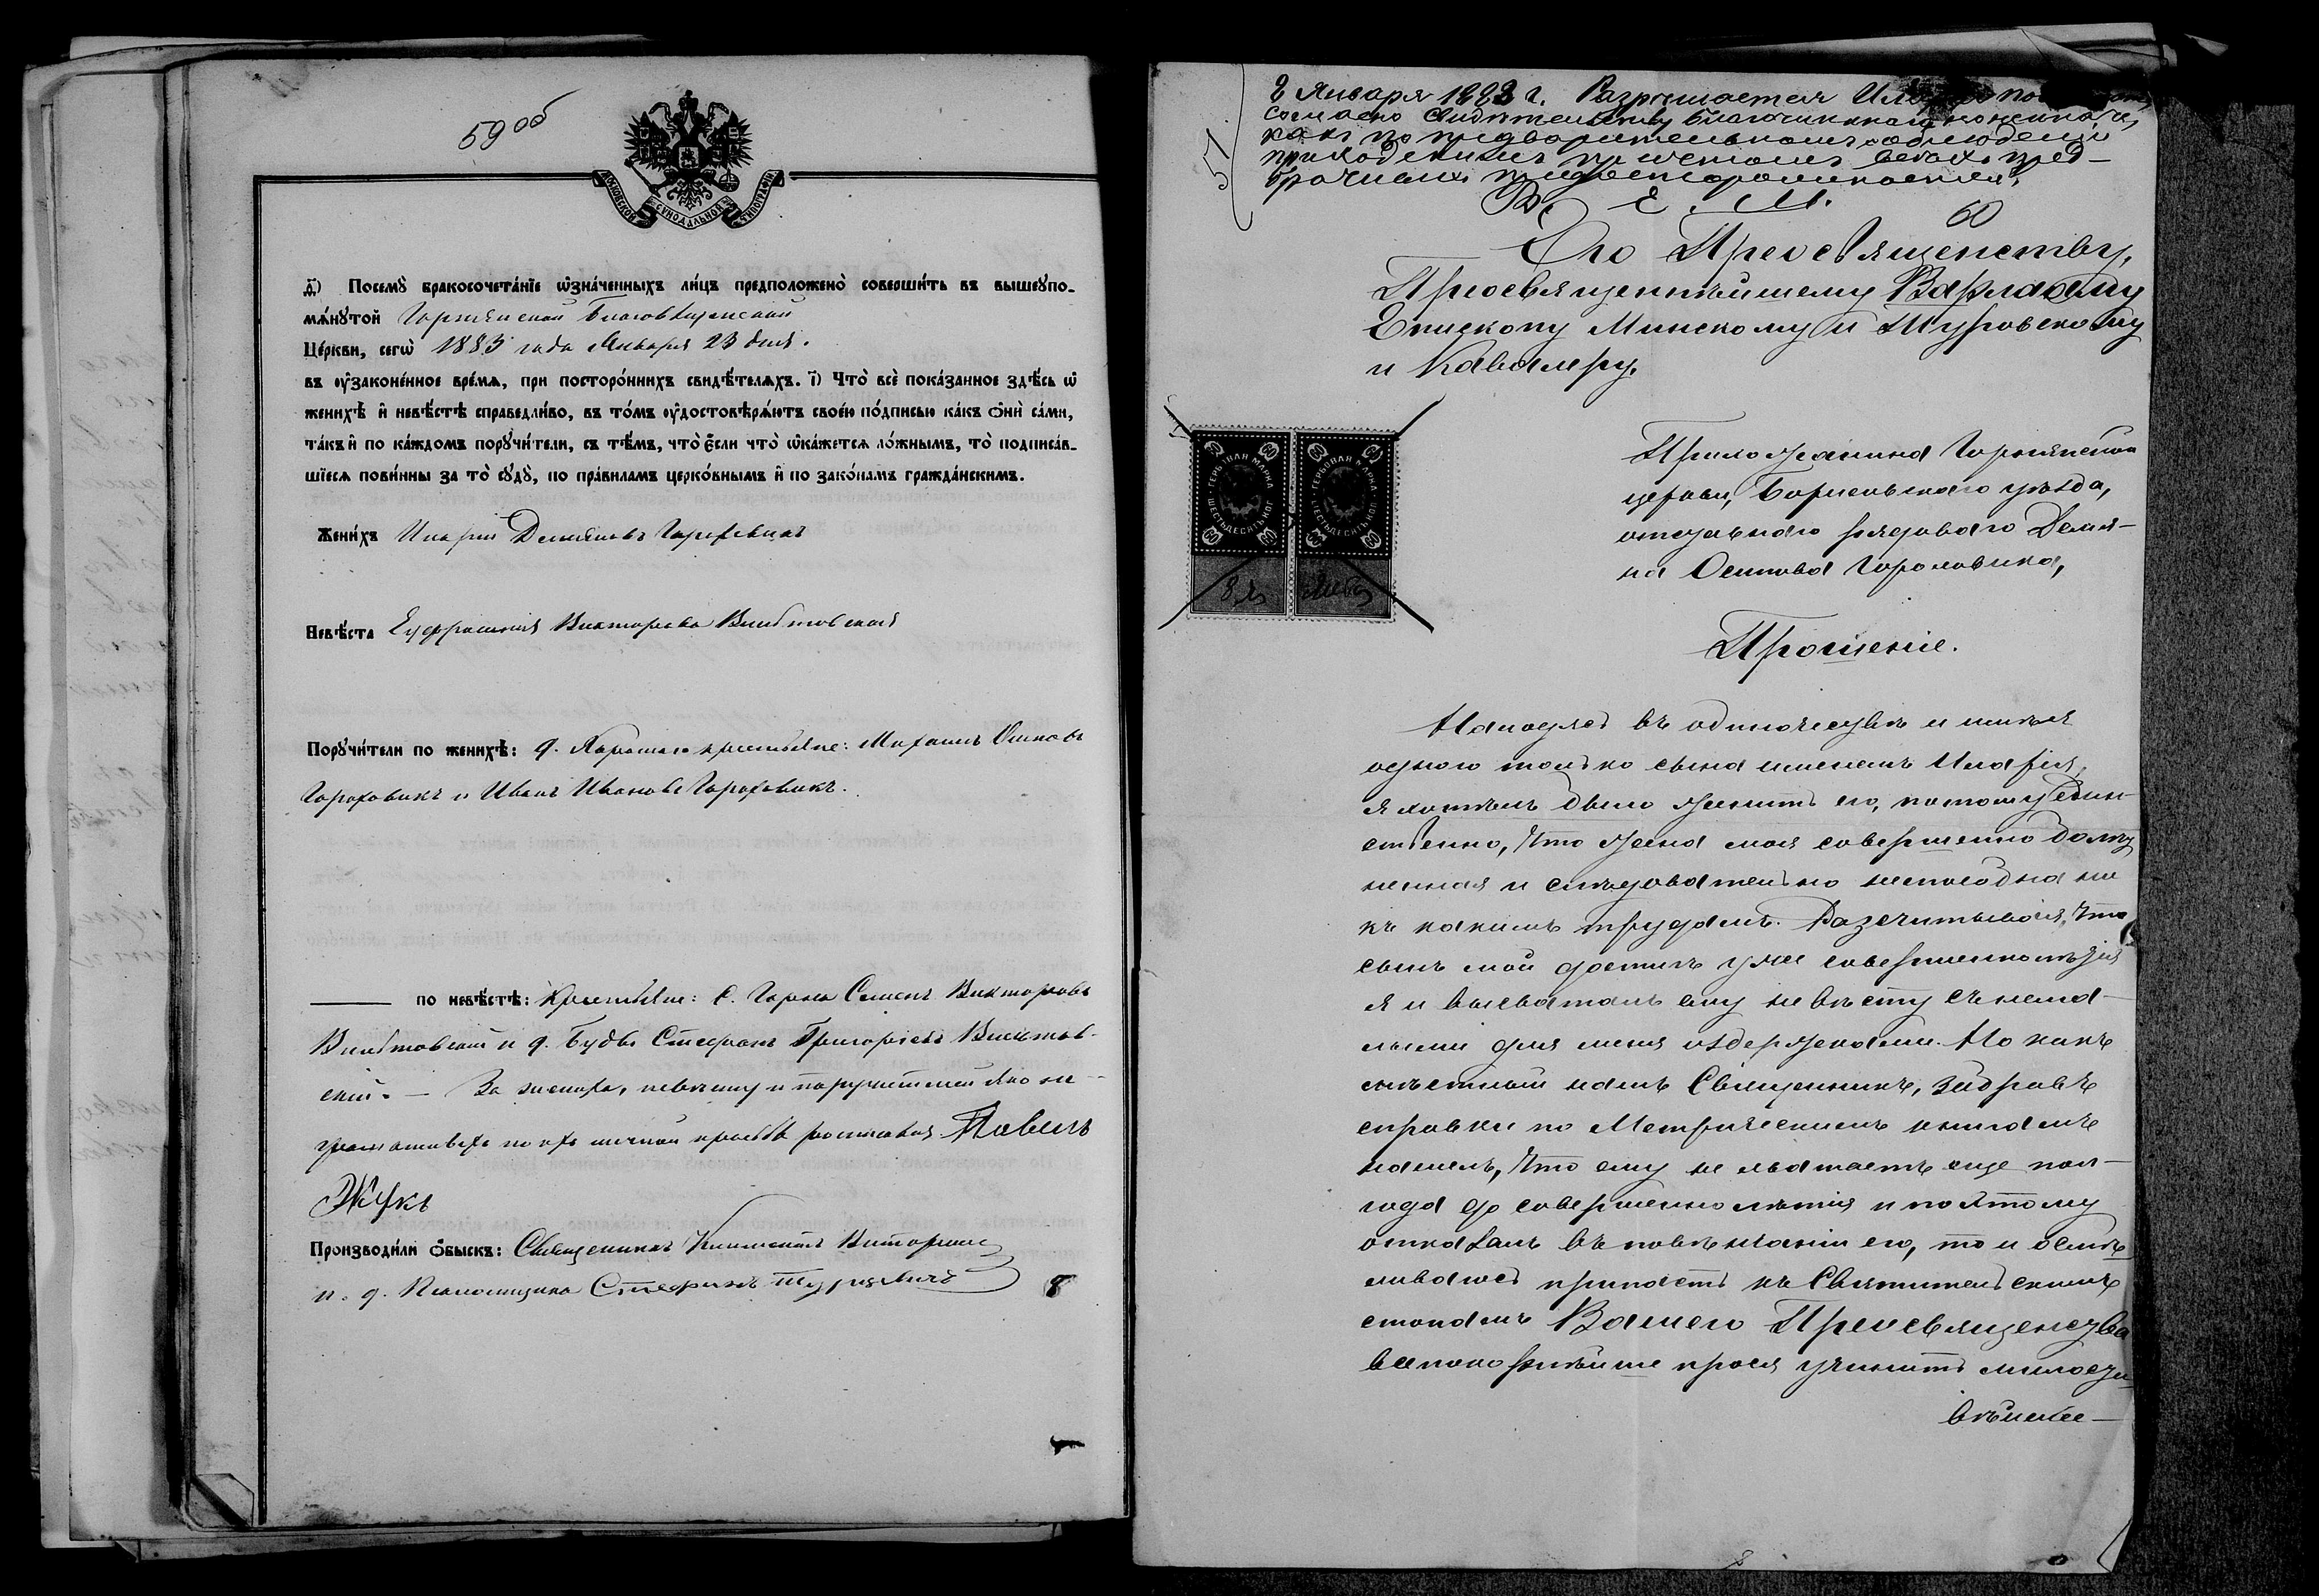 59 об
МОСКОВСКОЙ СѴНОДАЛЬНОЙ ТИПОГРАФІИ
д҃) Посемꙋ̀ бракосочета́нїе ѡ҆зна́ченныхъ ли́цъ предположено̀ соверши́ть въ вышеꙋпо-
мѧ́нꙋтой Горнянской Благовѣщенской
Це́ркви, сегѡ̀ 1883 года Января 23 дня.
въ ᲂу҆зако́ненное вре́мѧ, при посторо́ннихъ свидѣ́телѧхъ. і҃) Что̀ всѐ пока́занное здѣ́сь ѡ҆
женихѣ̀ и҆ невѣ́стѣ справедли́во, въ то́мъ ᲂу҆достовѣрѧ́ютъ свое́ю по́дписью ка́къ ѻ҆нѝ са́ми,
та́къ и҆ по ка́ждомъ порꙋчи́тели, съ тѣ́мъ, что̀ є҆́сли что̀ ѡ҆ка́жетсѧ ло́жнымъ, то̀ подписа́в-
шїесѧ пови́нны за то̀ сꙋдꙋ̀, по пра́виламъ церко́внымъ и҆ по зако́намъ гражда́нскимъ.
Жени́хъ Иларій Демьяновъ Гороховикъ
Невѣ́ста Еуфросинія Викторова
Порꙋчи́тели по женихѣ̀: д. крестьяне: Михаилъ Осиповъ
Гороховикъ и Иванъ Ивановъ Гороховикъ.
по невѣ́стѣ: Крестьяне: с. Горна Семенъ Викторовъ
и д. Буды Стефанъ Григорьевъ
скій. — За жениха, невѣсту и поручителей яко не-
грамотныхъ по ихъ личной просьбѣ росписался Павелъ
Жукъ
Производи́ли ѻ҆́быскъ: Священникъ
и. д. Псаломщика Стефанъ
8
57
2 Января 1883 г. Разрѣшается
согласно свидѣтельству благочиннаго
какъ по предварительномъ соблюденіи
приходскимъ причтомъ всѣхъ пред-
брачныхъ предосторожностей.
В. Е. М.
60
Его Преосвященству,
Преосвященнѣйшему Варлааму
Епископу Минскому и Туровскому
и Кавалеру,
ГЕРБОВАЯ МАРКА ШЕСТЬДЕСЯТЪ КОП. 60
ГЕРБОВАЯ МАРКА ШЕСТЬДЕСЯТЪ КОП. 60
Прихожанина Горнянской
церкви, Борисовскаго уѣзда,
отставнаго рядоваго Демья-
на Осипова Гороховика,
Прошеніе.
Находясь въ одиночествѣ и имѣя
одного только сына именемъ Иларія,
я хотѣлъ было женить его, потому един-
ственно, что жена моя совершенно болѣз-
ненная и слѣдовательно неспособна ни
къ какимъ трудамъ. Разсчитывая, что
сынъ мой достигъ уже совершеннолѣтія
я и высваталъ ему невѣсту съ нема-
лыми для меня издержками. Но какъ
мѣстный нашъ Священникъ, забравъ
справки по Метрическимъ книгамъ
нашелъ, что ему не хватаетъ еще пол-
года до совершеннолѣтія и поэтому
отказалъ въ повѣнчаніи его, то и осмѣ-
ливаюсь припасть къ Святительскимъ
стопамъ Вашего Преосвященства
всепокорнѣйше прося учинить милости-
вѣйшее—